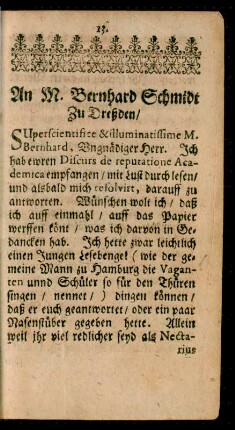 23.
An M. Bernhard Schmidt
Zu Dreßden/
SUperscientifice & illuminatissime M.
Bernhard, Vngnädiger Herr. Jch
hab ewren Discurs de reputatione Aca-
demica empfangen/ mit Lust durch lesen/
und alsbald mich resolvirt, darauff zu
antworten. Wünschen wolt ich/ daß
ich auff einmahl/ auff das Papier
werffen könt/ was ich darvon in Ge-
dancken hab. Jch hette zwar leichtlich
einen Jungen Lesebengel (wie der ge-
meine Mann zu Hamburg die Vagan-
ten unnd Schüler so für den Thüren
singen/ nennet/) dingen können/
daß er euch geantwortet/ oder ein paar
Nasenstüber gegeben hette. Allein
weil jhr viel redlicher seyd als Necta-
rius